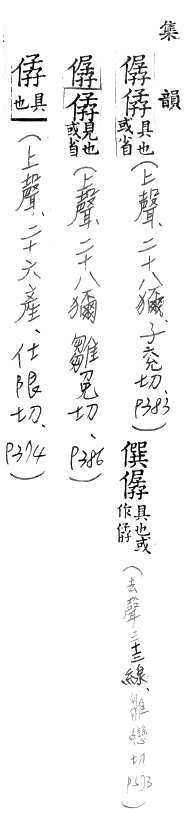 集韻
僝㑨具也或省(上聲、二十八獮、子兗切、P383)
僎僝具也或作㑨(去聲三十三線、雛戀切P573)
僝㑨見也或省(上聲、二十八獮雛免切、P386)
㑨具也(上聲、二十六產、仕限切、P374)